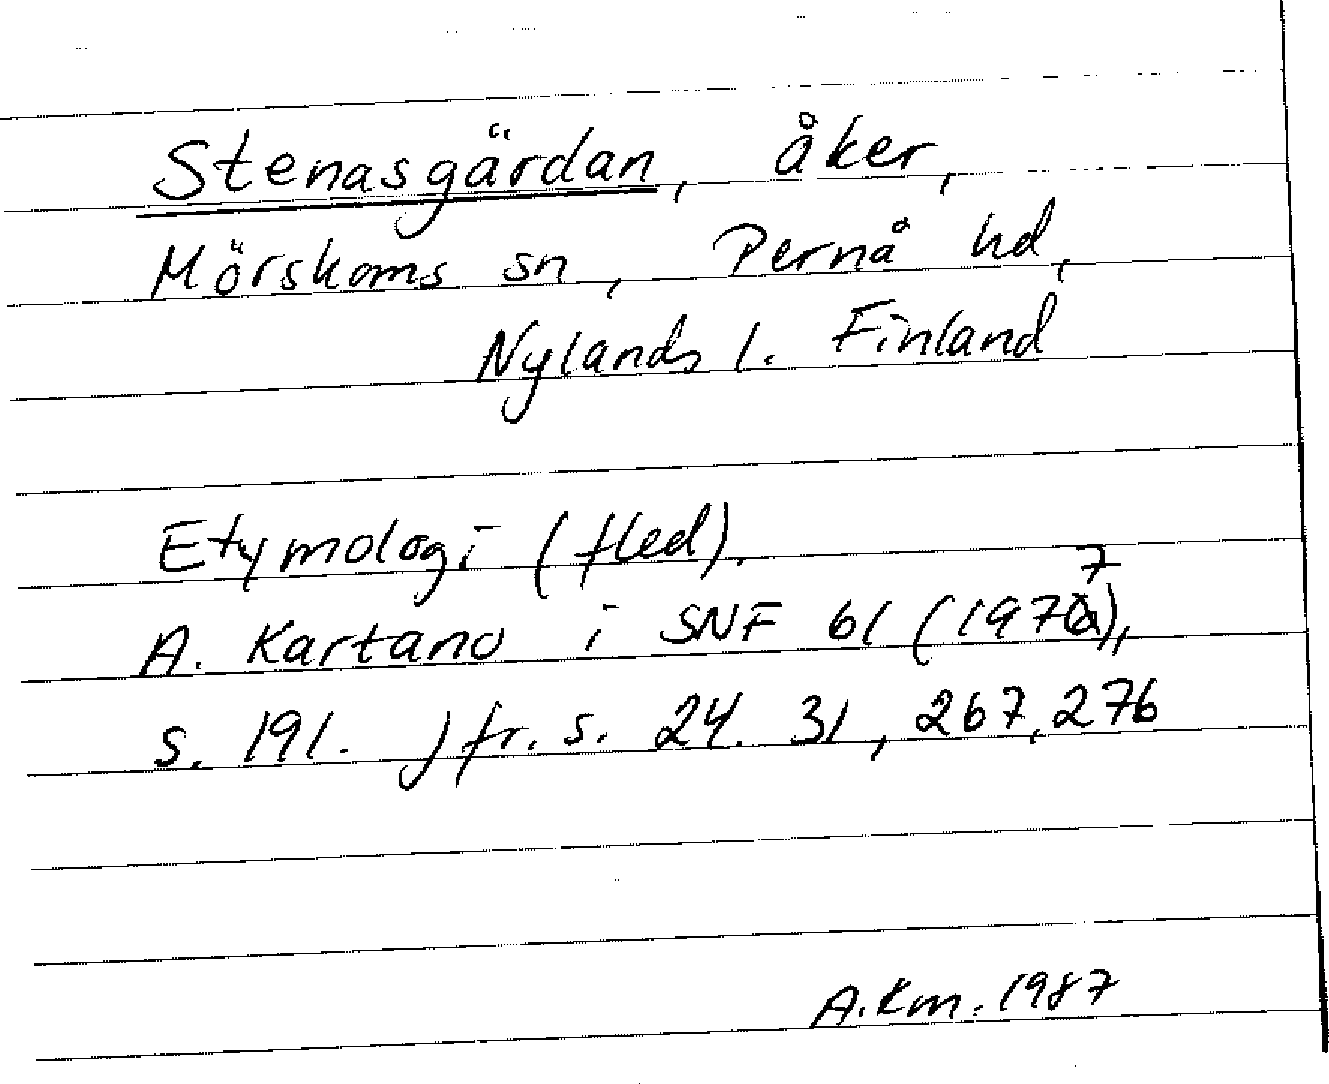 Stenasgärdan, åker,
Mörskoms sn, Pernå hd,
Nylands l. Finland
Etymologi (fled).
A. Kartano i SNF 61 (1977),
s. 191. Jfr. s. 24. 31, 267, 276
A.Km. 1987